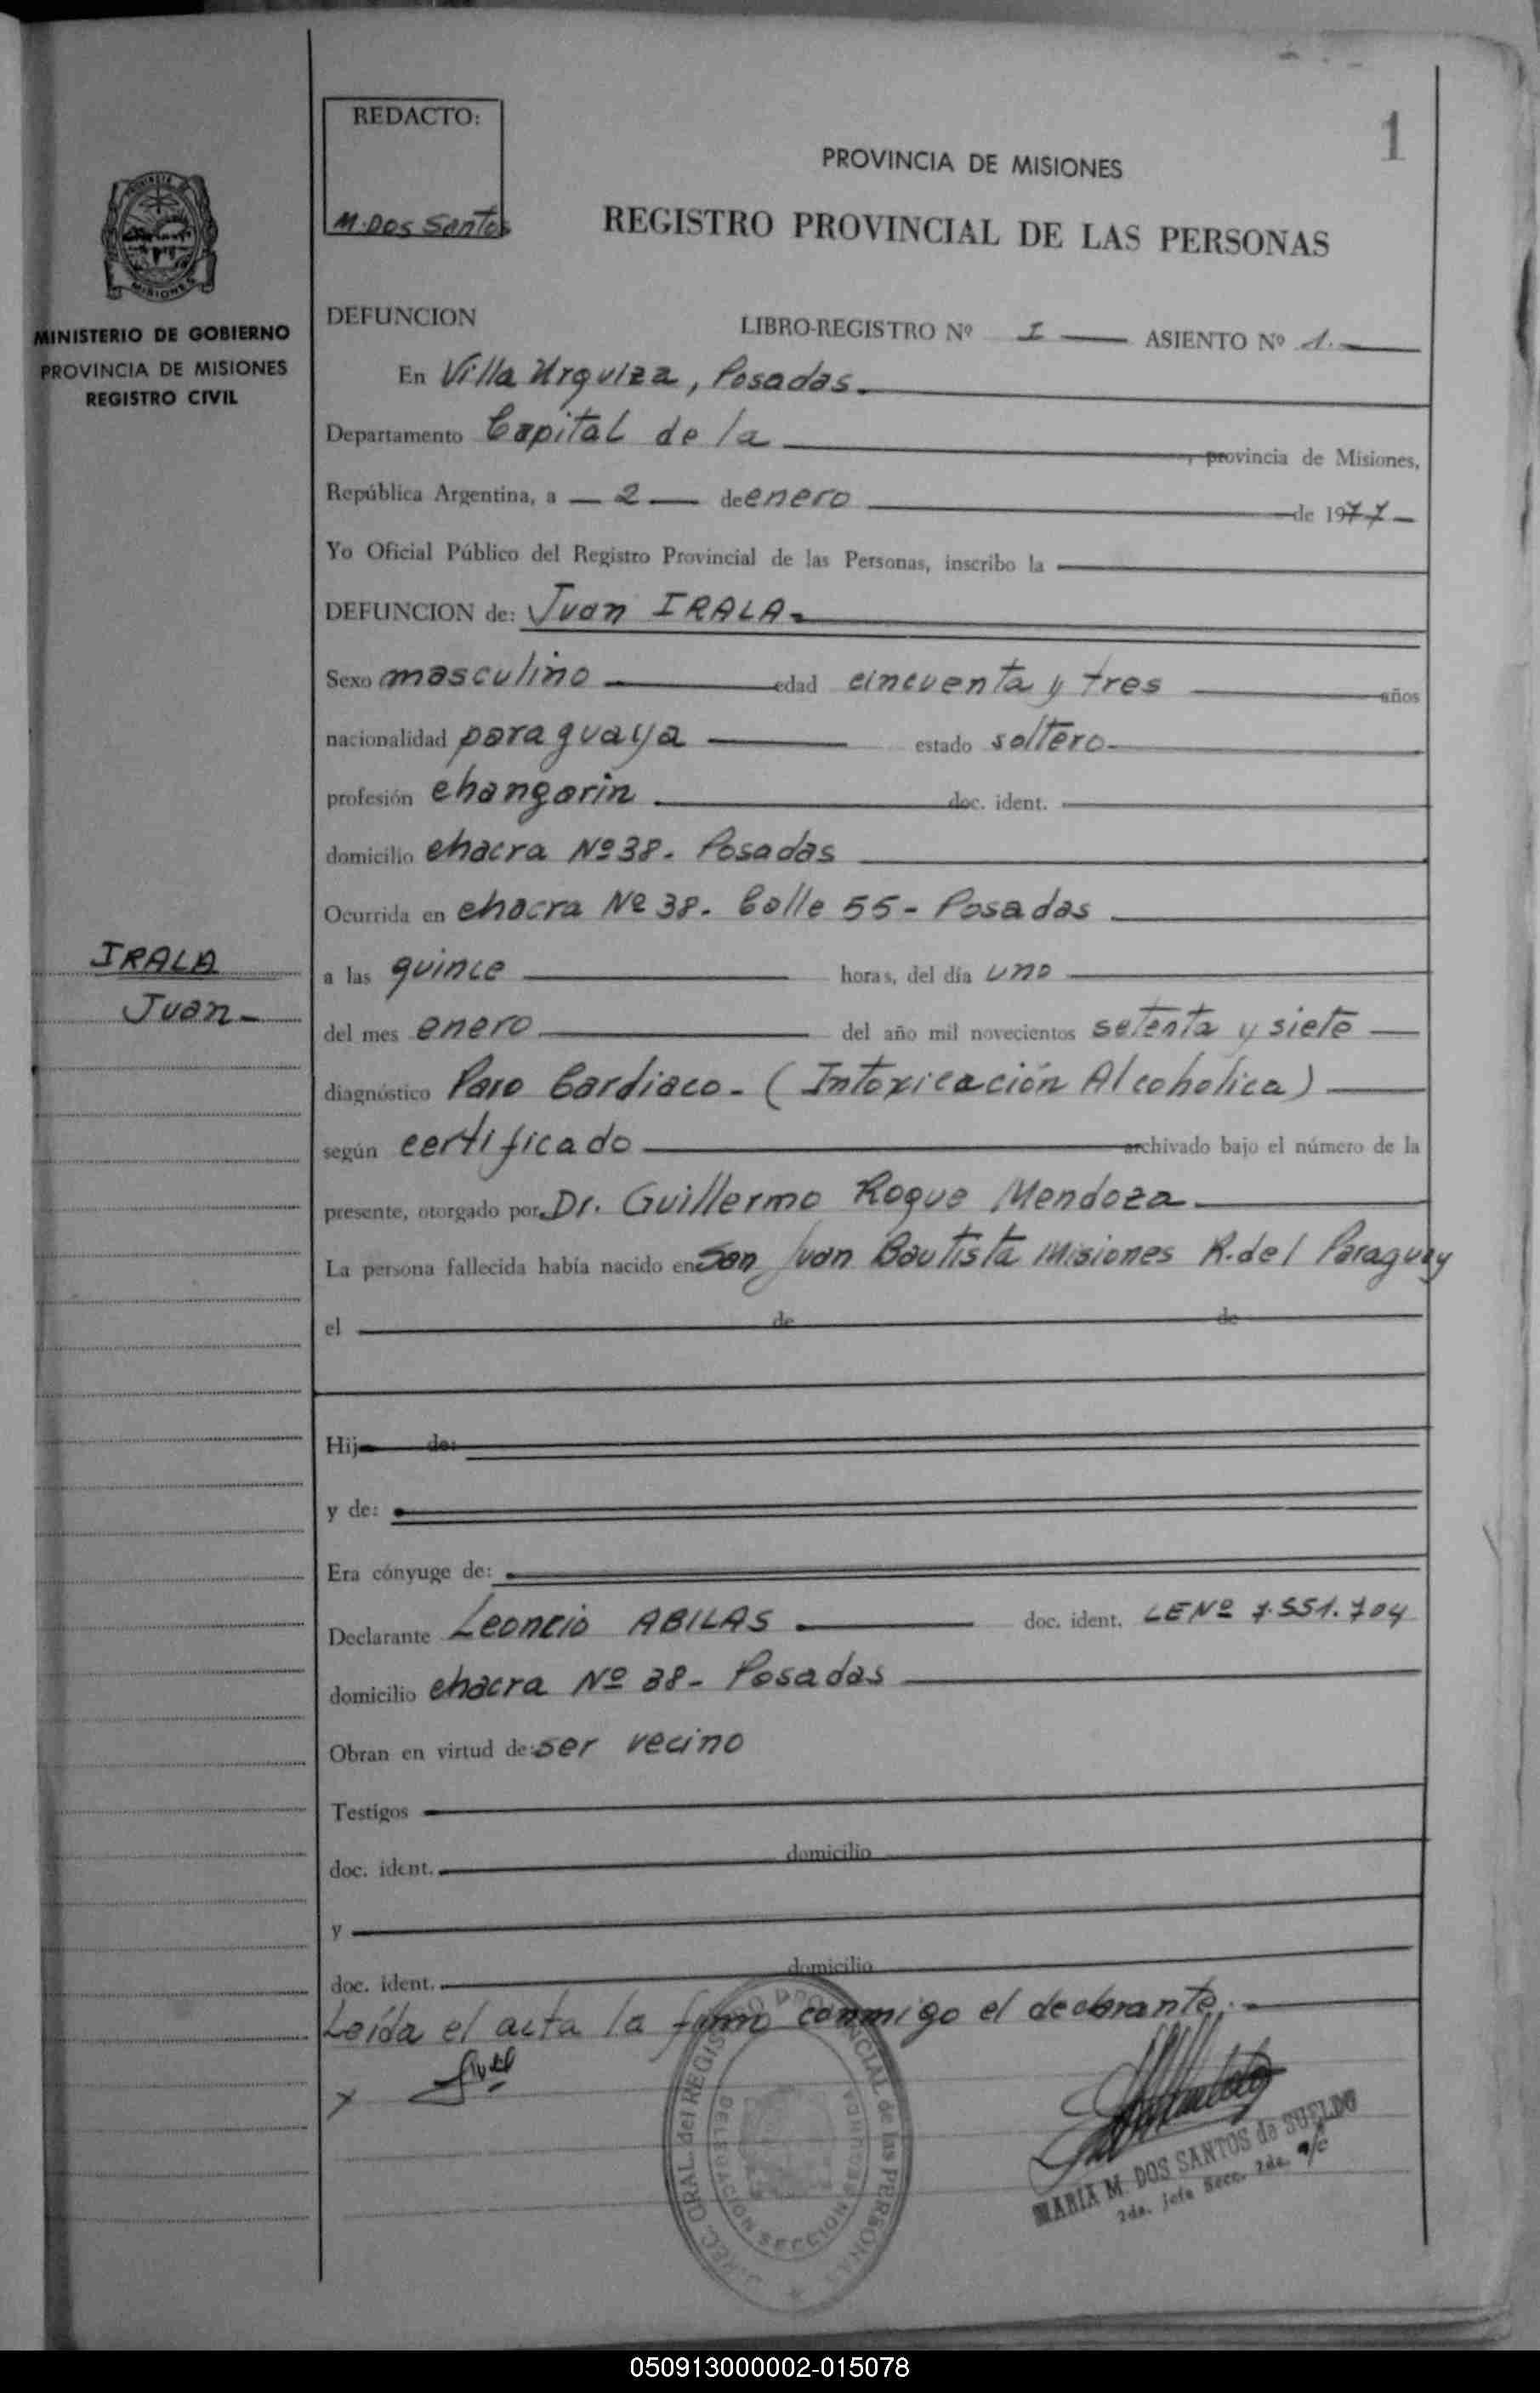 1
REDACTO:
M. Dos Santos
PROVINCIA DE MISIONES
REGISTRO PROVINCIAL DE LAS PERSONAS
PROVINCIA DE
MISIONES
MINISTERIO DE GOBIERNO
PROVINCIA DE MISIONES
REGISTRO CIVIL
IRALA
Juan
DEFUNCION LIBRO-REGISTRO Nº I ASIENTO Nº 1.
En Villa Urquiza, Posadas.
Departamento Capital de la , provincia de Misiones,
República Argentina, a 2 de enero de 1977
Yo Oficial Público del Registro Provincial de las Personas, inscribo la
DEFUNCION de: Juan IRALA
Sexo masculino edad cincuenta y tres años
nacionalidad paraguaya estado soltero
profesión changarin doc. ident.
domicilio chacra Nº 38. Posadas
Ocurrida en chacra Nº 38. Calle 55 - Posadas
a las quince horas, del día uno
del mes enero del año mil novecientos setenta y siete
diagnóstico Paro Cardiaco - (Intoxicación Alcoholica)
según certificado archivado bajo el número de la
presente, otorgado por Dr. Guillermo Roque Mendoza
La persona fallecida había nacido en San Juan Bautista Misiones R. del Paraguay
el de de
Hij de:
y de:
Era cónyuge de:
Declarante Leoncio ABILAS doc. ident. LE Nº 7.551.704
domicilio chacra Nº 38 - Posadas
Obran en virtud de: ser vecino
Testigos
doc. ident. domicilio
y
doc. ident. domicilio
Leída el acta la firma conmigo el declarante.
x
DIREC. GRAL. del REGISTRO PROVINCIAL de las PERSONAS
DELEGACION SECCION SEGUNDA
MARIA M. DOS SANTOS de SUELDO
2da. Jefa Secc. 2da. a/c
050913000002-015078